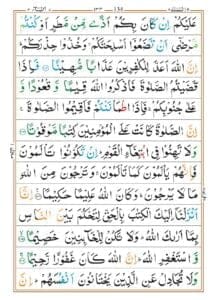 عَلَيْكُمْ اِنْ كَانَ بِكُمْ اَذًى مِّنْ مَّطَرٍ اَوْ كُنْتُمْ
مَّرْضٰۤى اَنْ تَضَعُوْۤا اَسْلِحَتَكُمْ ۚ وَخُذُوْا حِذْرَكُمْ ؕ
اِنَّ اللّٰهَ اَعَدَّ لِلْكٰفِرِيْنَ عَذَابًا مُّهِيْنًا فَاِذَا
قَضَيْتُمُ الصَّلٰوةَ فَاذْكُرُوا اللّٰهَ قِيَامًا وَّقُعُوْدًا وَّ
عَلٰى جُنُوْبِكُمْ ۚ فَاِذَا اطْمَاْنَنْتُمْ فَاَقِيْمُوا الصَّلٰوةَ ۚ
اِنَّ الصَّلٰوةَ كَانَتْ عَلَى الْمُؤْمِنِيْنَ كِتٰبًا مَّوْقُوْتًا
وَلَا تَهِنُوْا فِى ابْتِغَآءِ الْقَوْمِ ؕ اِنْ تَكُوْنُوْا تَاْلَمُوْنَ
فَاِنَّهُمْ يَاْلَمُوْنَ كَمَا تَاْلَمُوْنَ ۚ وَتَرْجُوْنَ مِنَ اللّٰهِ
مَا لَا يَرْجُوْنَ ؕ وَكَانَ اللّٰهُ عَلِيْمًا حَكِيْمًا اِنَّاۤ
اَنْزَلْنَاۤ اِلَيْكَ الْكِتٰبَ بِالْحَقِّ لِتَحْكُمَ بَيْنَ النَّاسِ
بِمَاۤ اَرٰىكَ اللّٰهُ ؕ وَلَا تَكُنْ لِّلْخَآئِنِيْنَ خَصِيْمًا
وَّاسْتَغْفِرِ اللّٰهَ ؕ اِنَّ اللّٰهَ كَانَ غَفُوْرًا رَّحِيْمًا
وَلَا تُجَادِلْ عَنِ الَّذِيْنَ يَخْتَانُوْنَ اَنْفُسَهُمْ ؕ اِنَّ